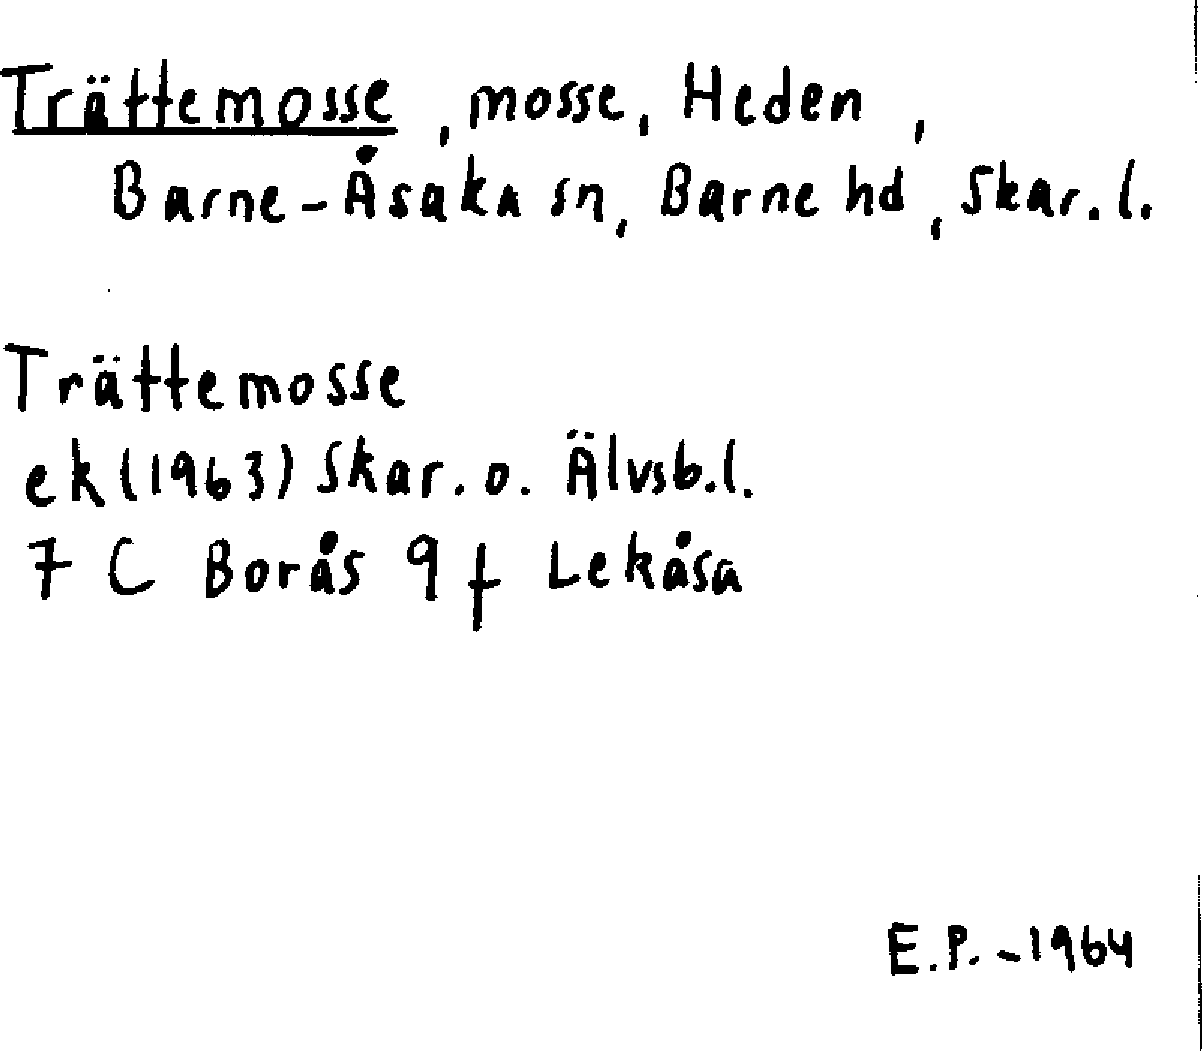 Trättemosse, mosse, Heden,
Barne-Åsaka sn, Barne hd, Skar. l.
Trättemosse
ek (1963) Skar. o. Älvsb. l.
7 C Borås 9 f Lekåsa
E.P. -1964